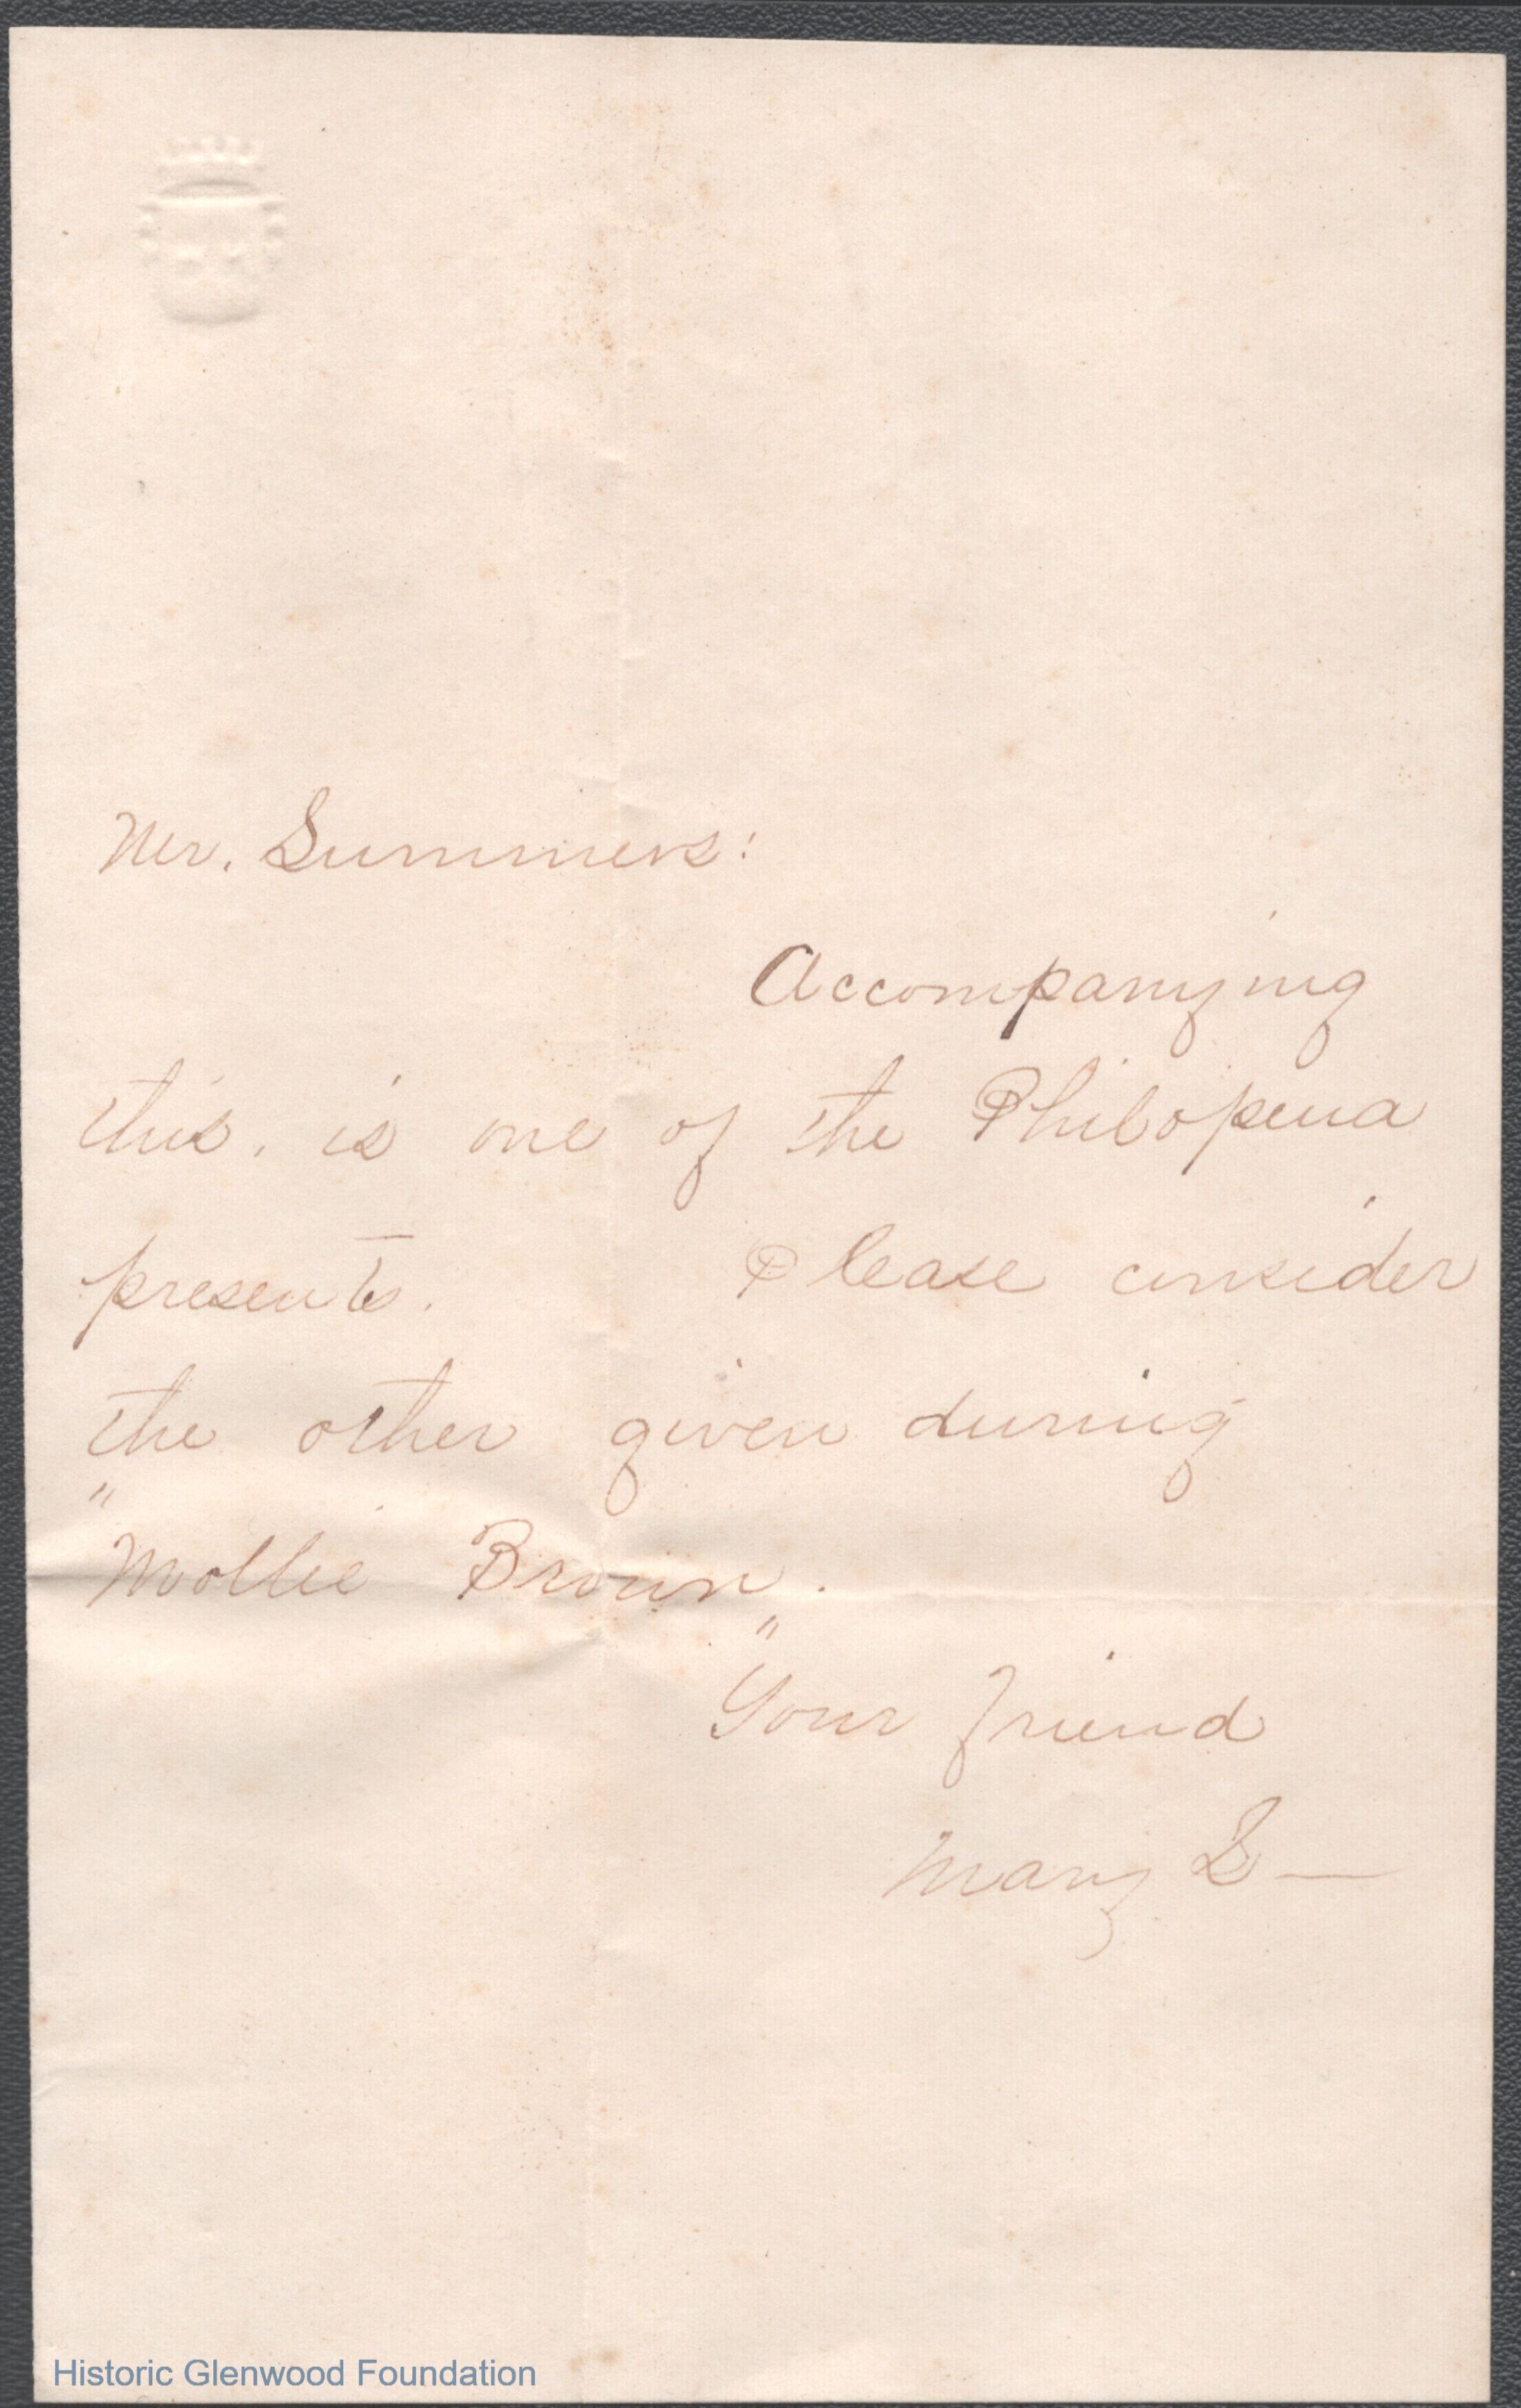 Mr. Summers:
Accompanying
this, is one of the Philopena
presents. Please consider
the other given during
"Mollie Brown".
Your friend
Mary S—
Historic Glenwood Foundation